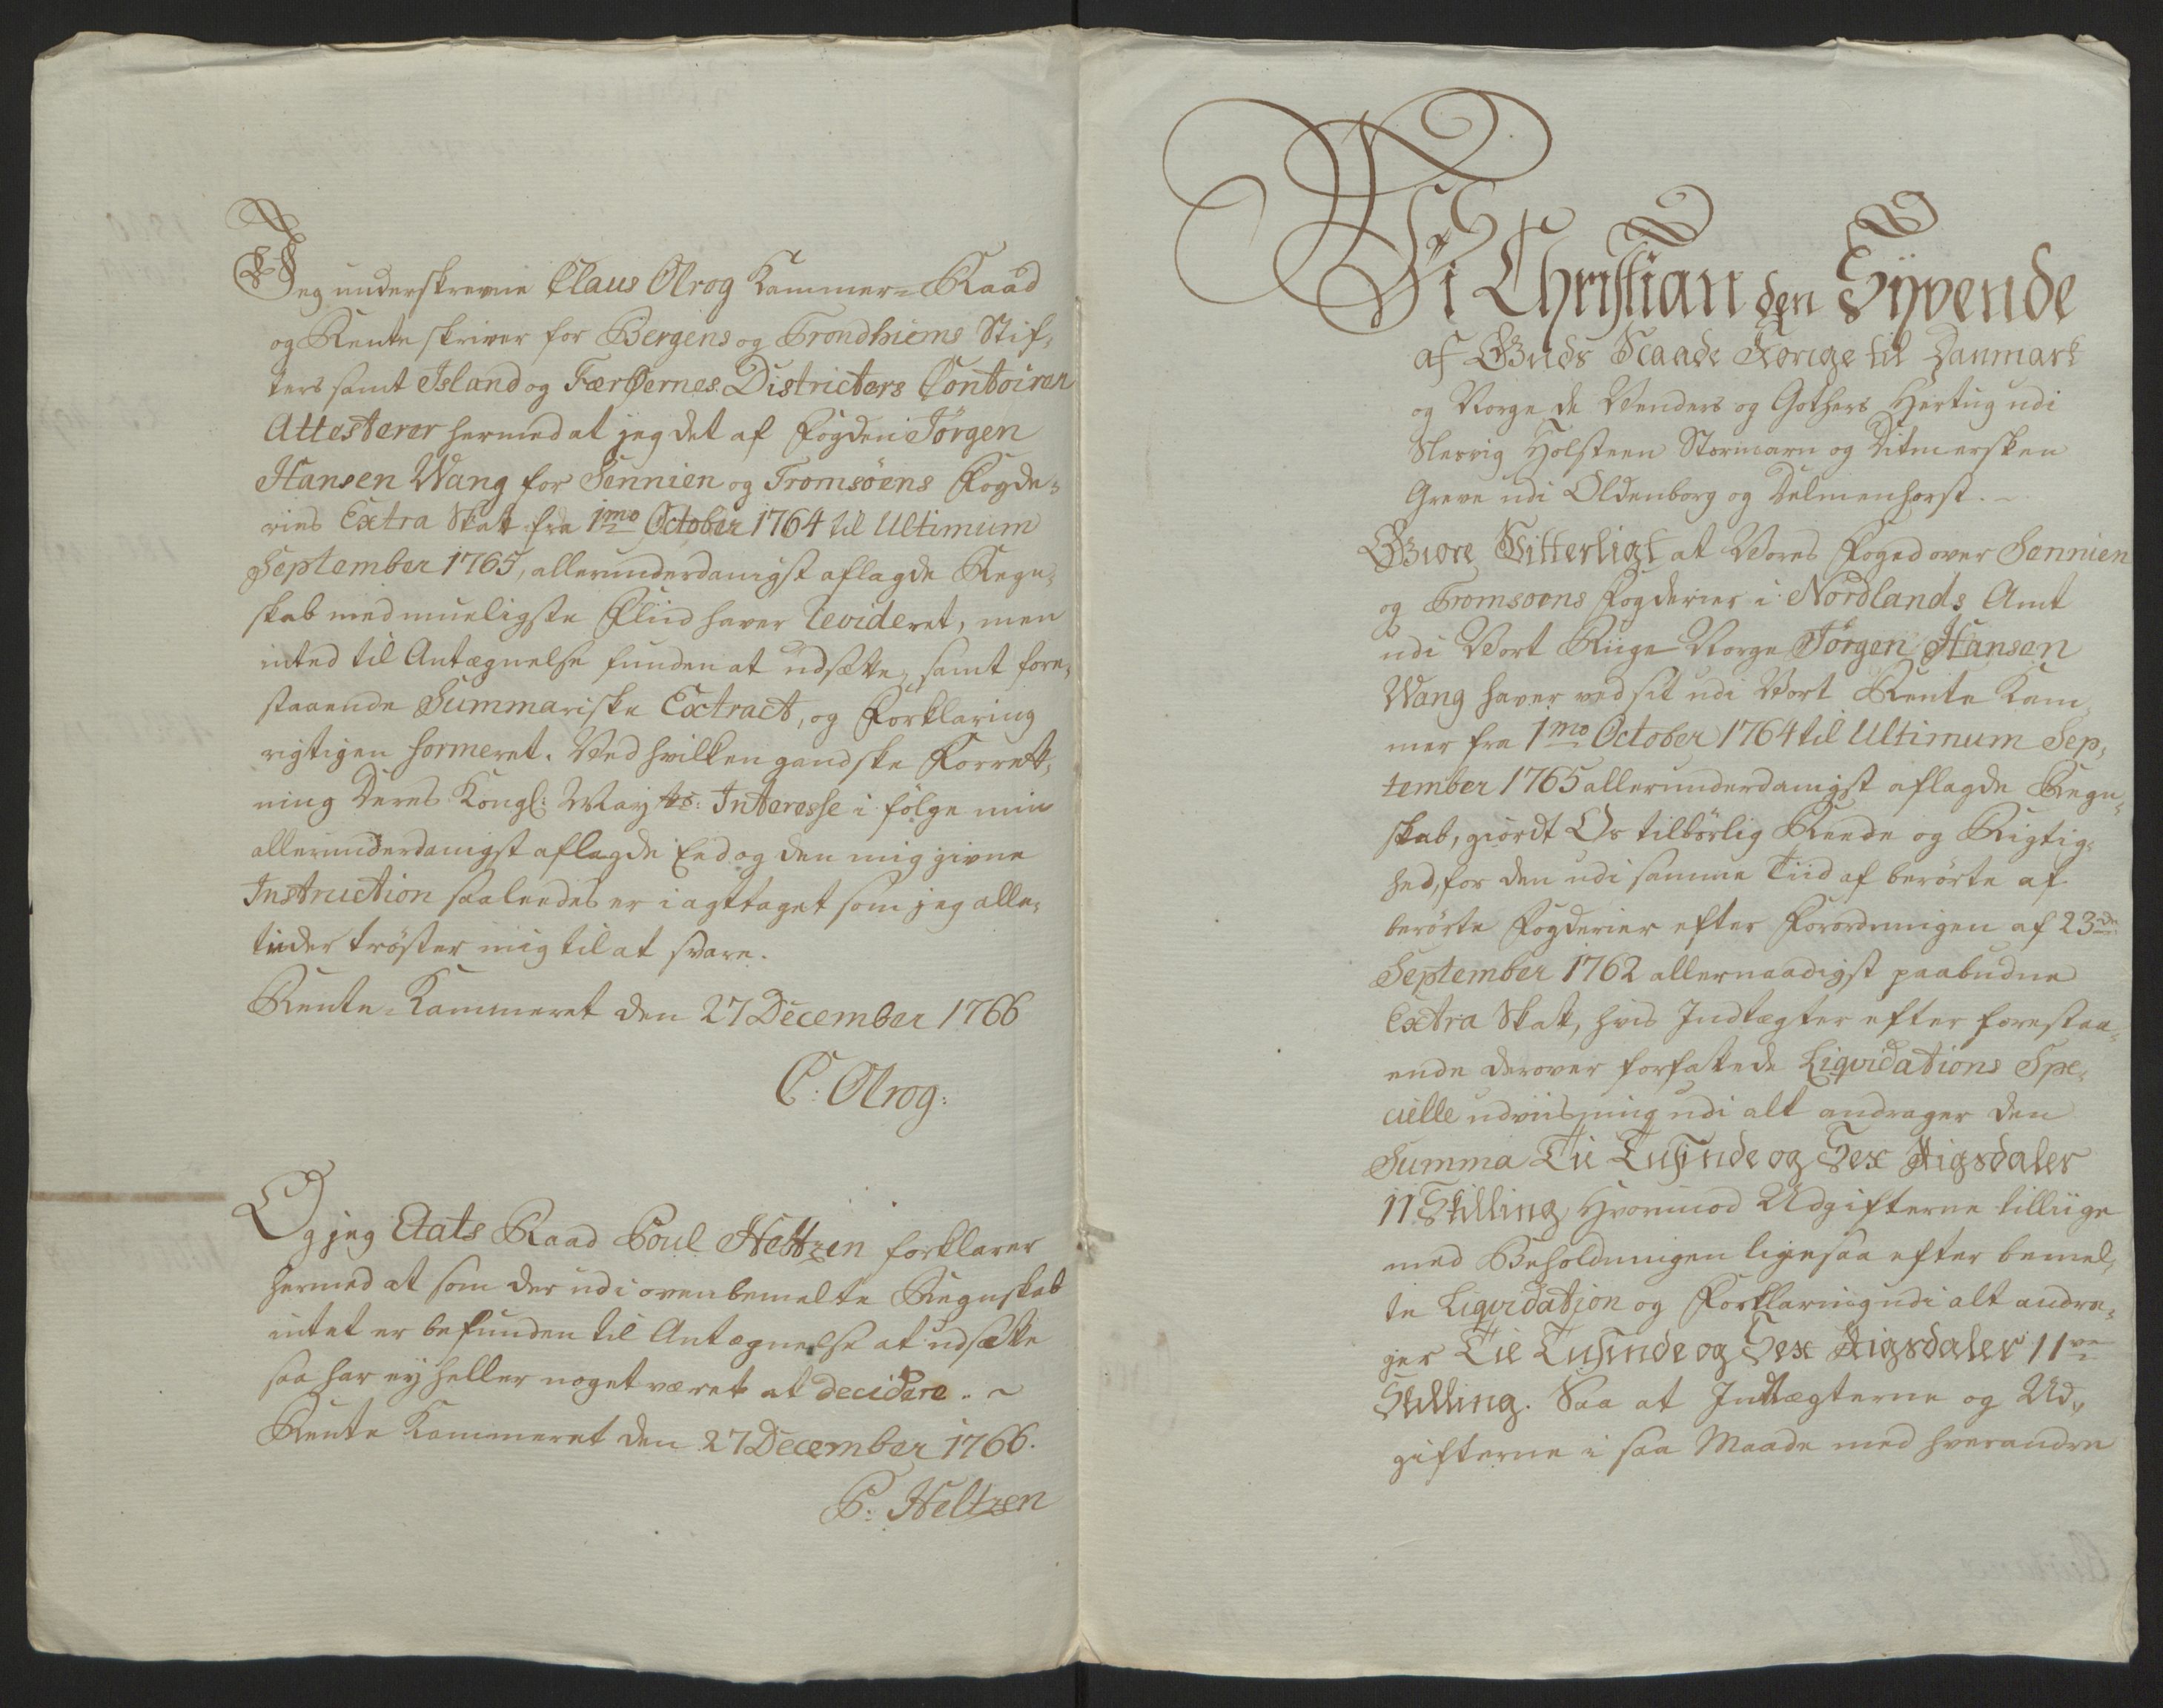 Jeg underskrevne Claus Olrog Kammer=Raad
og Rente skriver for Bergens og Trondhiems Stif,
ters samt Island og Færøernes Districters Contoirer
Attesterer hermed at jeg det af Fogden Jörgen
Hansen Wang for Sennien og Tromsöens Fogde=
ries Extra Skat fra 1mo October 1764 til Ultimum
September 1765, allerunderdanigst aflagde Regn=
skab med mueligste Fliid haver revideret, men
inted til Antægnelse funden at udsætte, samt fore,
staaende Summariske Extract, og Forklaring
rigtigen formeret. Ved hvilken gandske Forrett,
ning Deres Kongl: Mayts: Interesse i følge min
allerunderdanigst aflagde Eed og den mig givne
Instruction saaledes er i agttaget som jeg alle,
tiider tröster mig til at svare.
Rente=Kammeret den 27 December 1766
C: Olrog:
Og jeg Etats Raad Poul Heltzen forklarer
hermed at som der udi ovenbemelte Regnskab
intet er befunden til Antægnelse at udsætte
saa har ey heller noget været at decidere. ~
Rente Kammeret den 27 December 1766.
P: Heltzen
Vi Christian den Syvende
af Guds Naade Konge til Danmark
og Norge de Venders og Gothers Hertug udi
Slesvig Holsteen Stormarn og Ditmersken
Greve udi Oldenborg og Delmenhorst. ~
Giøre Vitterligt at Vores Foged over Sennien
og Tromsoens Fogderier i Nordlands Amt
udi Vort Riige Norge Jörgen Hansen
Wang haver ved sit udi Vort Rente Kam,
mer fra 1mo October 1764 til Ultimum Sep,
tember 1765 allerunderdanigst aflagde Regn,
skab, giordt Os tilbörlig Reede og Rigtig,
hed, for den udi samme Tiid af berörte af
berörte Fogderier efter Forordningen af 23de
September 1762 allernaadigst paabudne
Extra Skat, hvis Indtægter efter forestaa,
ende derover forfattede Liqvidations Spe,
cielle udviisning udi alt andrager den
Summa Tie Tusinde og Sex Rigsdaler
11 Skilling, Hvorimod Udgifterne tilliige
med Beholdningen ligesaa efter bemel,
te Liqvidation og Forklaring udi alt andra,
ger Tie Tusinde og Sex Rigsdaler 11ve
Skilling. Saa at Indtægterne og Ud,
gifterne i saa Maade med hverandre